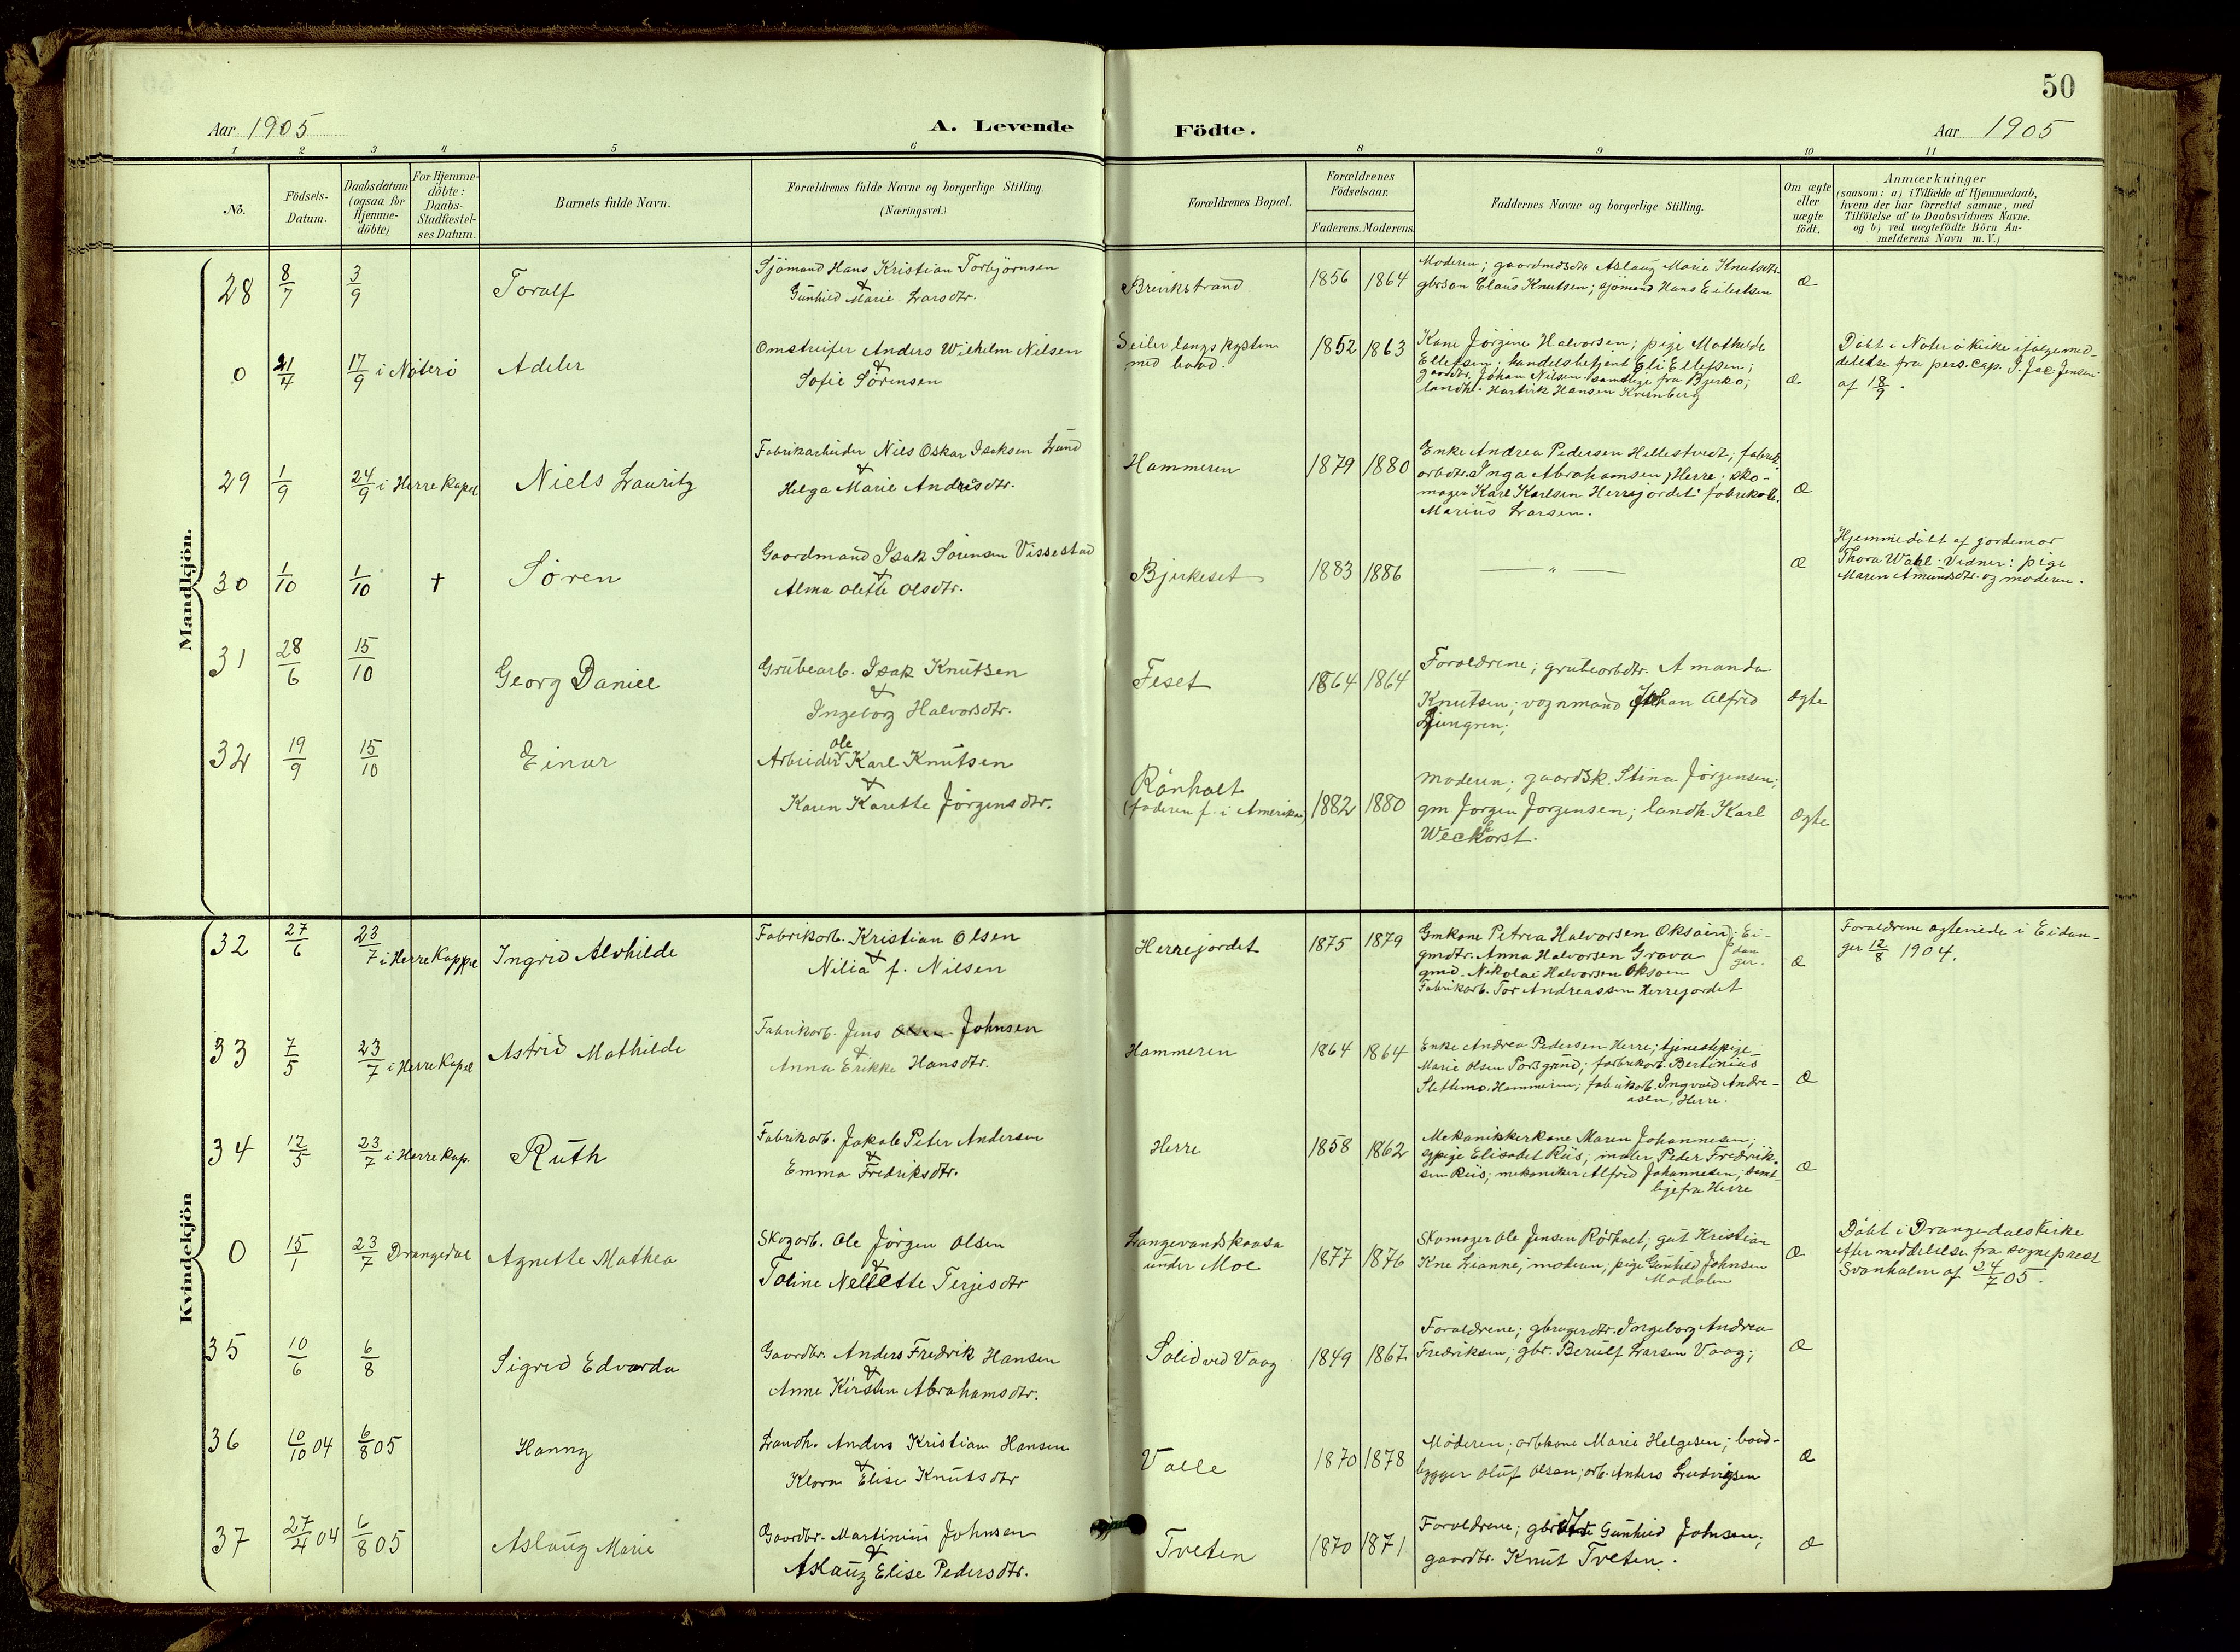 50
Aar 1905
A. Levende
Födte.
Aar 1905
1 2 3 4 5 6 8 9 10 11
No.
Födsels-
Datum.
Daabsdatum
(ogsaa for
Hjemme-
döbte)
For Hjemme-
döbte:
Daabs-
Stadfæstel-
ses Datum.
Barnets fulde Navn.
Forældrenes fulde Navne og borgerlige Stilling.
(Næringsvei.)
Forældrenes Bopæl.
Forældrenes
Födselsaar.
Faderens. Moderens.
Faddernes Navne og borgerlige Stilling.
Om ægte
eller
uægte
födt.
Anmærkninger
(saasom: a) i Tilfælde af Hjemmedaab,
hvem der har forrettet samme, med
Tilföielse af to Daabsvidners Navne.
og b) ved uægtefödte Börn An-
melderens Navn m.V.)
Mandkjön.
28 8/7 3/9 Toralf
Sjömand Hans Kristian Torbjörnsen
&
Gunhild Marie Larsdtr.
Brevikstrand
1856 1864
Moderen; gaardmdsdtr Aslaug Marie Knutsdtr
gbrsøn Claus Knutsen; sjömand Hans Eilertsen
Æ
0 21/4 17/9 i Nöterö Adeler
Omstreifer Anders Wilhelm Nilsen
&
Sofie Sörensen
Seiler langs kysten
med baad.
1852 1863
Kone Jörgine Halvorsen; pige Mathilde
Ellefsen; handelsbetjent Eli Ellefsen;
gaardbr. Johan Nilsen samtlige fra Bjerkö;
landh. Hartvik Hansen Kvernberg
Æ
Döbt i Nöterö kirke ifölge med-
delelse fra pers. cap. I. Jac Jensen
af 18/9.
29 1/9 24/9 i Herre Kapel Niels Lauritz
Fabrikarbeider Nils Oskar Isaksen Lund
&
Helga Marie Andrésdtr.
Hammeren
1879 1880
Enke Andrea Pedersen Hellestvedt; fabrik-
arbdtr. Inga Abrahamsen, Herre; sko-
mager Karl Karlsen Herrejordet; fabrikarb.
Marius Larsen.
Æ
30 1/10 1/10 † Sören
Gaardmand Isak Sörensen Vissestad
&
Alma Olette Olsdtr.
Bjerkeset
1883 1886
— „ —
Æ
Hjemmedöbt af jordemor
Thora Wahl. Vidner: pige
Maren Amundsdtr. og moderen.
31 28/6 15/10 Georg Daniel
Grubearb. Isak Knutsen
&
Ingeborg Halvorsdtr.
Feset
1864 1864
Forældrene; grubearbdtr. Amanda
Knutsen; vognmand Johan Alfred
Ljungren;
Ægte
32 19/9 15/10 Einar
Ole
Arbeider Karl Knutsen
&
Karen Karette Jörgensdtr.
Rönholt
(faderen f. i Amerika)
1882 1880
Moderen; gaardsk. Stina Jörgensen;
gm Jörgen Jörgensen; landh. Karl
Weckhorst.
Ægte
Kvindekjön
32 27/6 23/7 i Herre Kappel Ingrid Alvhilde
Fabrikarb. Kristian Olsen
&
Nilia f. Nilsen
Herrejordet
1875 1879
Gmkone Petrea Halvorsen Oksøien; Ei-
gmdtr. Anna Halvorsen Grava dan
gmd. Nikolai Halvorsen Oksøien ger.
Fabrikarb. Tor Andreassen Herrejordet
Æ
Forældrene ægteviede i Eidan-
ger 12/8 1904.
33 7/5 23/7 i Herre Kapel Astrid Mathilde
Fabrikarb. Jens Johnsen
&
Anna Erikke Hansdtr.
Hammeren
1864 1864
Enke Andrea Pedersen Herre; tjenestepige
Marie Olsen Porsgrund; fabrikarb. Bertinius
Slettemo, Hammeren; fabrikarb. Ingvald Andre-
asen, Herre.
Æ
34 12/5 23/7 i Herre Kap. Ruth
Fabrikarb. Jakob Peter Andersen
&
Emma Fredriksdtr.
Herre
1858 1862
Mekanikkerkone Maren Johannesen;
sypige Elisabet Riis; maler Peder Fredrik-
sen Riis; mekaniker Alfred Johannesen; samt-
lige fra Herre
Æ
0 15/1 23/7 Drangedal Agnette Mathea
Skogarb. Ole Jörgen Olsen
&
Toline Nellette Terjesdtr
Langevandskaasa
under Moe
1877 1876
Skomager Ole Jensen Rörholt; gut Kristian
Kne Lianne; moderen; pige Gunhild Johnsen
Modalen
Æ
Döbt i Drangedals Kirke
efter meddelelse fra sogneprest
Svanholm af 24/7 05.
35 10/6 6/8 Sigrid Edvarda
Gaardbr. Anders Fredrik Hansen
&
Anne Kirsten Abrahamsdtr.
Solid ved Vaag
1849 1867
Forældrene; gbrugerdtr. Ingeborg Andrea
Fredriksen; gbr. Berulf Larsen Vaag;
Æ
36 10/10 04 6/8 05 Hanny
Landh. Anders Kristian Hansen
&
Klara Elise Knutsdtr
Valle
1870 1878
Moderen; arbkone Marie Helgesen; baad-
bygger Oluf Olsen; arb. Anders Ludvigsen
Æ
37 27/4 04 6/8 05 Aslaug Marie
Gaardbr. Martinius Johnsen
&
Aslaug Elise Pedersdtr.
Tveten
1870 1871
Forældrene; Gunhild Johnsen;
gaardbr. Knut Tveten.
Æ